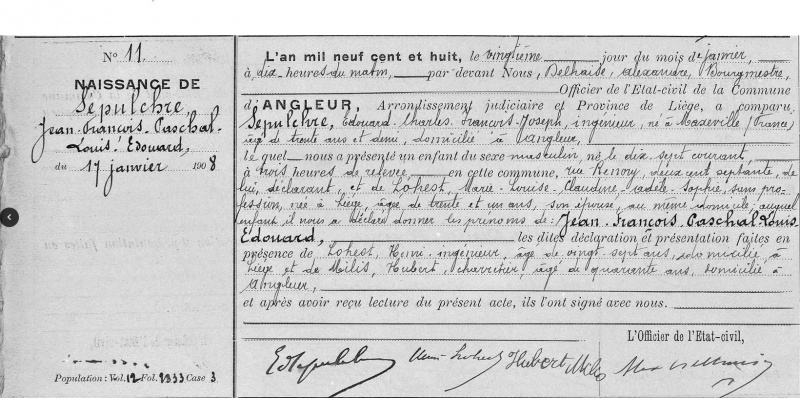 N° 11
NAISSANCE DE
Sépulchre
Jean-François-Paschal-
Louis-Edouard,
du 17 janvier 1908
Population: Vol. 12 Fol. 2333 Case 3
L'an mil neuf cent et huit, le vingtième jour du mois de janvier,
à dix heures du matin, par devant Nous, Delhaise, Alexandre, Bourgmestre,
Officier de l'Etat-civil de la Commune
d'ANGLEUR, Arrondissement judiciaire et Province de Liège, a comparu
Sépulchre, Edouard-Charles-François-Joseph, ingénieur, né à Maxeville (France)
âgé de trente ans et demi, domicilié à Angleur,
Lequel nous a présenté un enfant du sexe masculin, né le dix sept courant,
à trois heures de relevée, en cette commune, rue Renory, deux cent septante, de
lui, déclarant, et de Lohest, Marie-Louise-Claudine-Adèle-Sophie, sans pro-
fession, née à Liège, âgée de trente et un ans, son épouse, au même domicile, auquel
enfant il nous a déclaré donner les prénoms de: Jean-François-Paschal-Louis-
Edouard, les dites déclaration et présentation faites en
présence de Lohest, Henri, ingénieur, âgé de vingt sept ans, domicilié à
Liège et de Milis, Hubert, charretier, âgé de quarante ans, domicilié à
Angleur,
et après avoir reçu lecture du présent acte, ils l'ont signé avec nous.
L'Officier de l'Etat-civil,
Hubert Milis